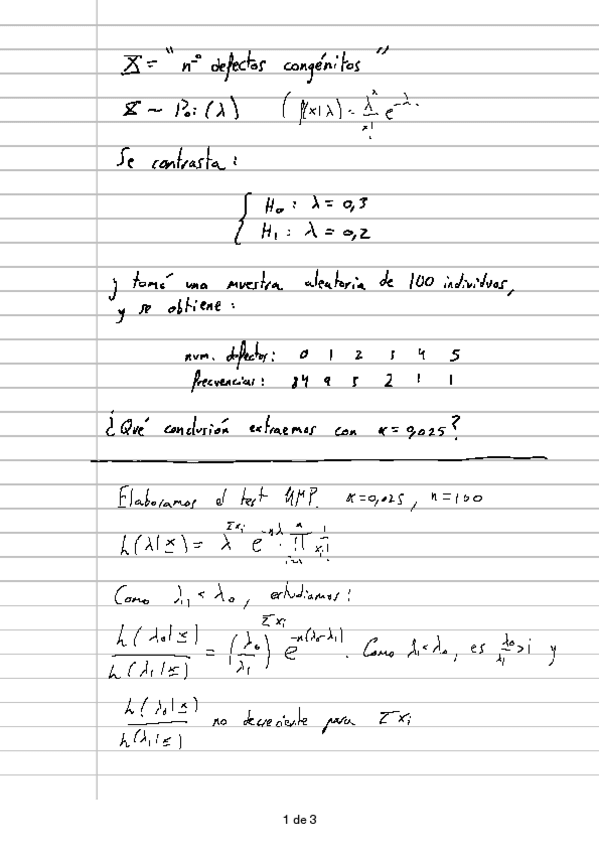 X = "nº defectos congénitos"
X ~ Poi(λ) ( f(x|λ) = λ^x/x! e^-λ.
Se contrasta:
H₀: λ = 0,3
H₁: λ = 0,2
y tomé una muestra aleatoria de 100 individuos,
y se obtiene:
num. defectos: 0 1 2 3 4 5
frecuencias: 84 9 3 2 1 1
¿Qué conclusión extraemos con α = 0,025?
Elaboramos el test UMP. α=0,025, n=100
L(λ|x) = λ^Σxi e^-nλ · ∏ i=1 n 1/xi!
Como λ₁ < λ₀, estudiamos:
L(λ₀|x)/L(λ₁|x) = (λ₀/λ₁)^Σxi e^-n(λ₀-λ₁). Como λ₁<λ₀, es λ₀/λ₁>1 y
L(λ₀|x)/L(λ₁|x) no decreciente para Σxi
1 de 3